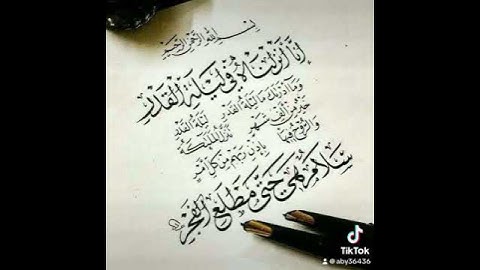 بسم الله الرحمن الرحيم
إنا أنزلناه في ليلة القدر
وما أدراك ما ليلة القدر ليلة القدر
خير من ألف شهر تنزل الملائكة
والروح فيها بإذن ربهم من كل أمر
سلام هي حتى مطلع الفجر
TikTok
@aby36436